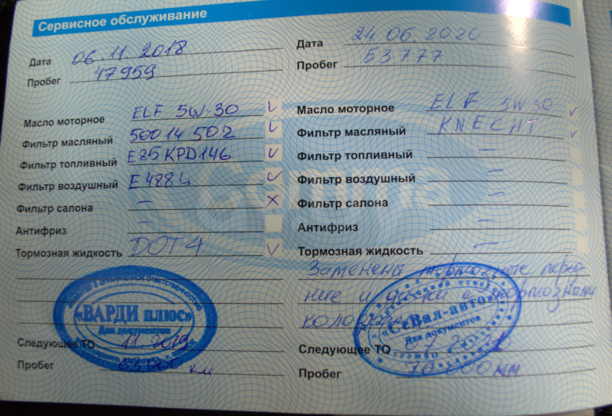 Сервисное обслуживание
Дата 06.11.2018
Пробег 47959
Масло моторное ELF 5W-30 V
Фильтр масляный 50014502 V
Фильтр топливный E85KPD146 V
Фильтр воздушный E488L V
Фильтр салона — X
Антифриз —
Тормозная жидкость DOT4 V
«ВАРДИ плюс»
Для документов
Следующее ТО 11.2019
Пробег 63000 км
Дата 24.06.2020
Пробег 53777
Масло моторное ELF 5W30 V
Фильтр масляный KNECHT V
Фильтр топливный —
Фильтр воздушный —
Фильтр салона —
Антифриз —
Тормозная жидкость —
Заменена перед-
ние и диски с тормозными
«СеВал-авто»
Для документов
Следующее ТО
Пробег 70 000